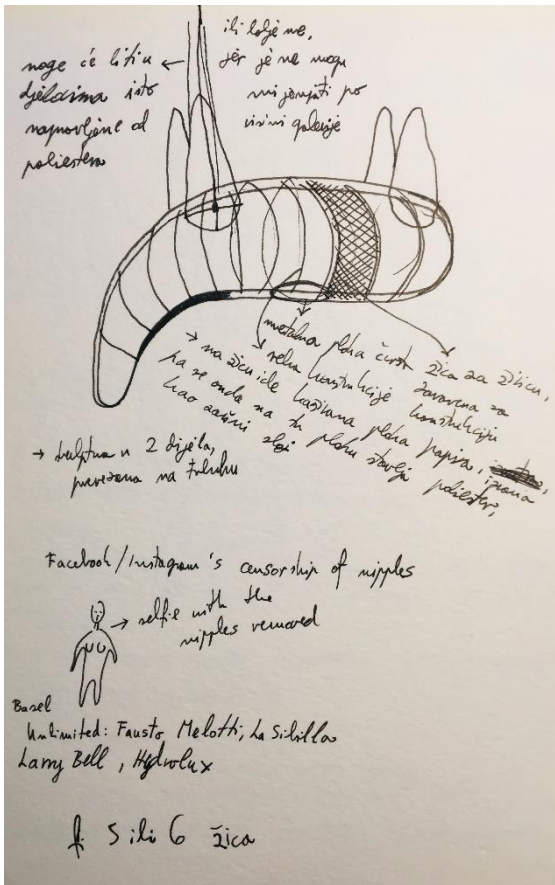 noge će biti u
djelovima isto
napravljene od
poliestera
ili bolje ne,
jer je ne mogu
mijenjati po
visini galerije
metalna ploha čvrsta žica za žbicu,
zavarena za
konstrukciju
rebra konstrukcije
→ na žicu ide kaširana ploha papira,
pa se onda na tu plohu stavlja poliester,
kao završni sloj
→ skulptura u 2 dijela,
povezana na trbuhu
Facebook/Instagram's censorship of nipples
→ selfie with the
nipples removed
Basel
Unlimited: Fausto Melotti, La Sibilla
Larry Bell, Hydrolux
5 ili 6 žica